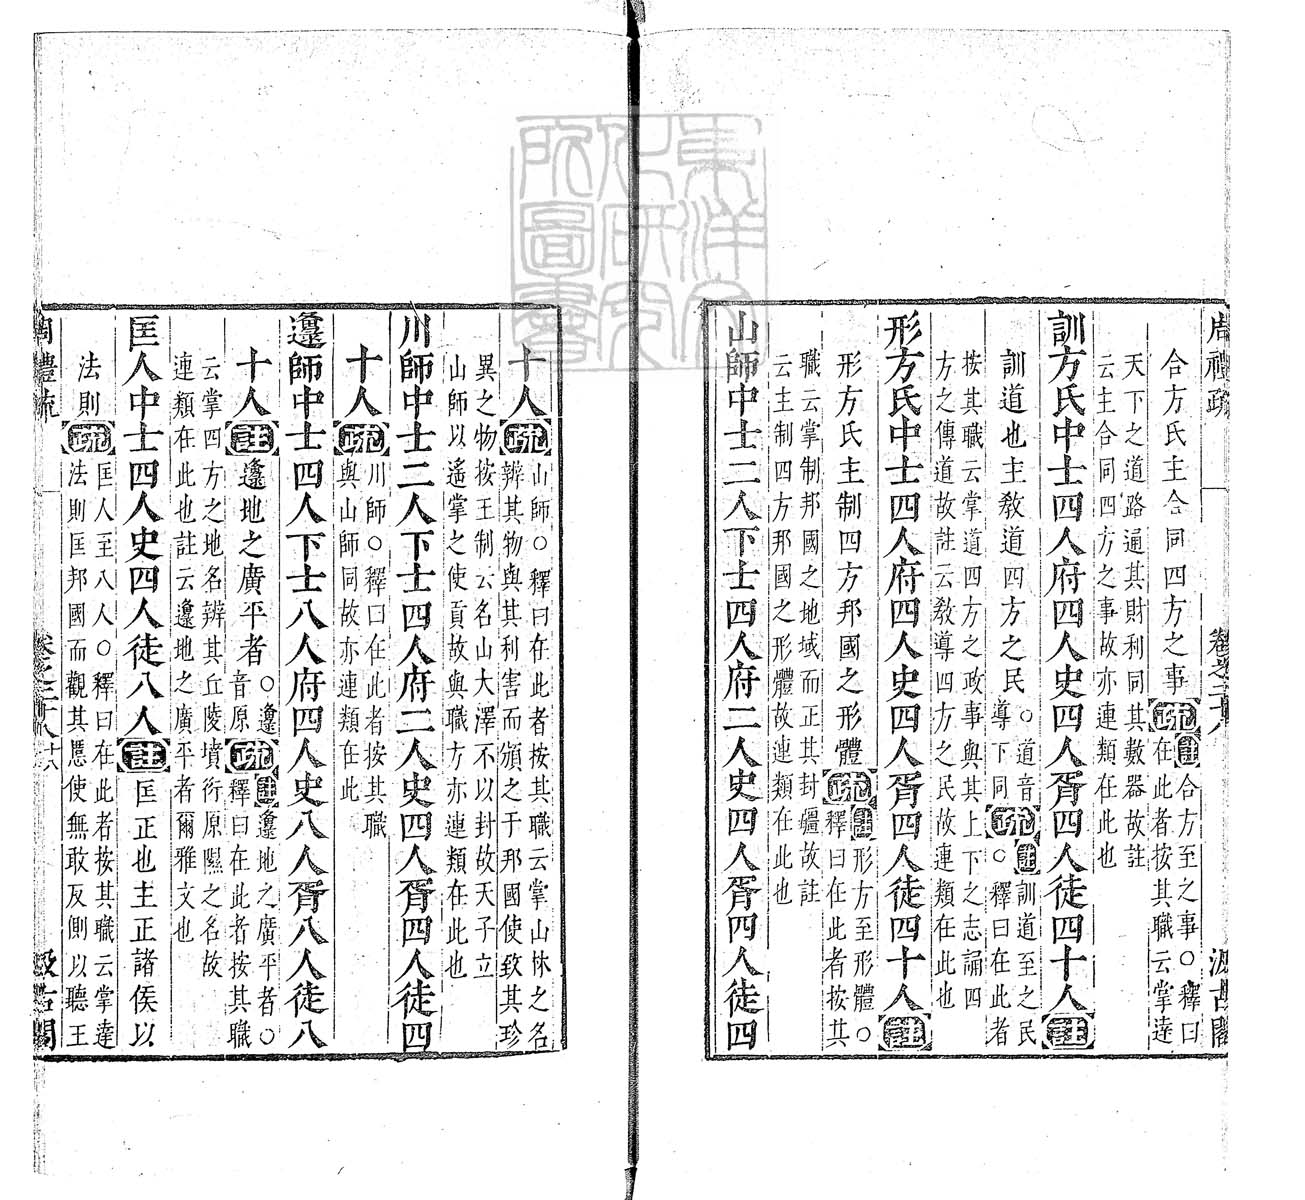 周禮疏
卷之二十八
汲古閣
合方氏主合同四方之事疏註合方至之事〇釋曰
在此者按其職云掌達
天下之道路通其財利同其數器故註
云主合同四方之事故亦連類在此也
訓方氏中士四人府四人史四人胥四人徒四十人註
訓道也主教道四方之民〇道音
導下同疏註訓道至之民
〇釋曰在此者
按其職云掌道四方之政事與其上下之志誦四
方之傳道故註云教導四方之民故連類在此也
形方氏中士四人府四人史四人胥四人徒四十人註
形方氏主制四方邦國之形體疏註形方至形體〇
釋曰在此者按其
職云掌制邦國之地域而正其封疆故註
云主制四方邦國之形體故連類在此也
山師中士二人下士四人府二人史四人胥四人徒四
十人疏山師〇釋曰在此者按其職云掌山林之名
辨其物與其利害而頒之于邦國使致其珍
異之物按王制云名山大澤不以封故天子立
山師以遙掌之使貢故與職方亦連類在此也
川師中士二人下士四人府二人史四人胥四人徒四
十人疏川師〇釋曰在此者按其職
與山師同故亦連類在此
邍師中士四人下士八人府四人史八人胥八人徒八
十人註邍地之廣平者〇邍
音原疏註邍地之廣平者〇
釋曰在此者按其職
云掌四方之地名辨其丘陵墳衍原隰之名故
連類在此也註云邍地之廣平者爾雅文也
匡人中士四人史四人徒八人註匡正也主正諸侯以
法則疏匡人至八人〇釋曰在此者按其職云掌達
法則匡邦國而觀其慝使無敢反側以聽王
周禮疏
卷之二十八
十六
汲古閣